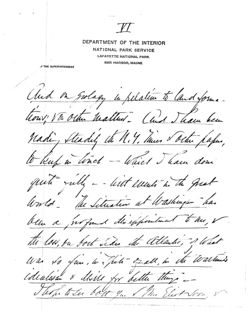 VI
DEPARTMENT OF THE INTERIOR
NATIONAL PARK SERVICE
LAFAYETTE NATIONAL PARK,
BAR HARBOR, MAINE
OF THE SUPERINTENDENT
And on Geology in relation to land forma-
tions, & on other matters. And I have been
reading steadily the N.Y. Times & other papers,
to keep in touch — which I have done
quite really — with events in the great
world. The situation at Washington has
been a profound disappointment to me, &
the low, on both sides the Atlantic, of what
was so fine, in spite of all, in the wartime
idealism & desire for better things —
I hope to see both you & Mrs. Eliot soon &